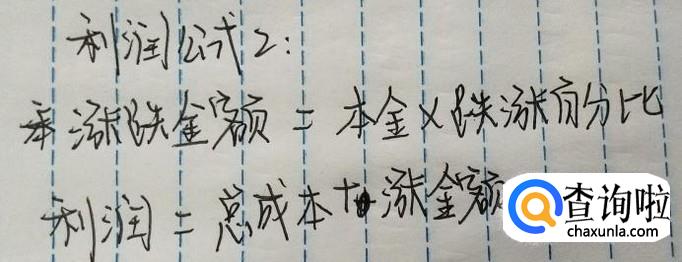 利润公式2:
涨跌金额 = 本金×跌涨百分比
利润 = 总成本+涨金额
查询啦
chaxunla.com